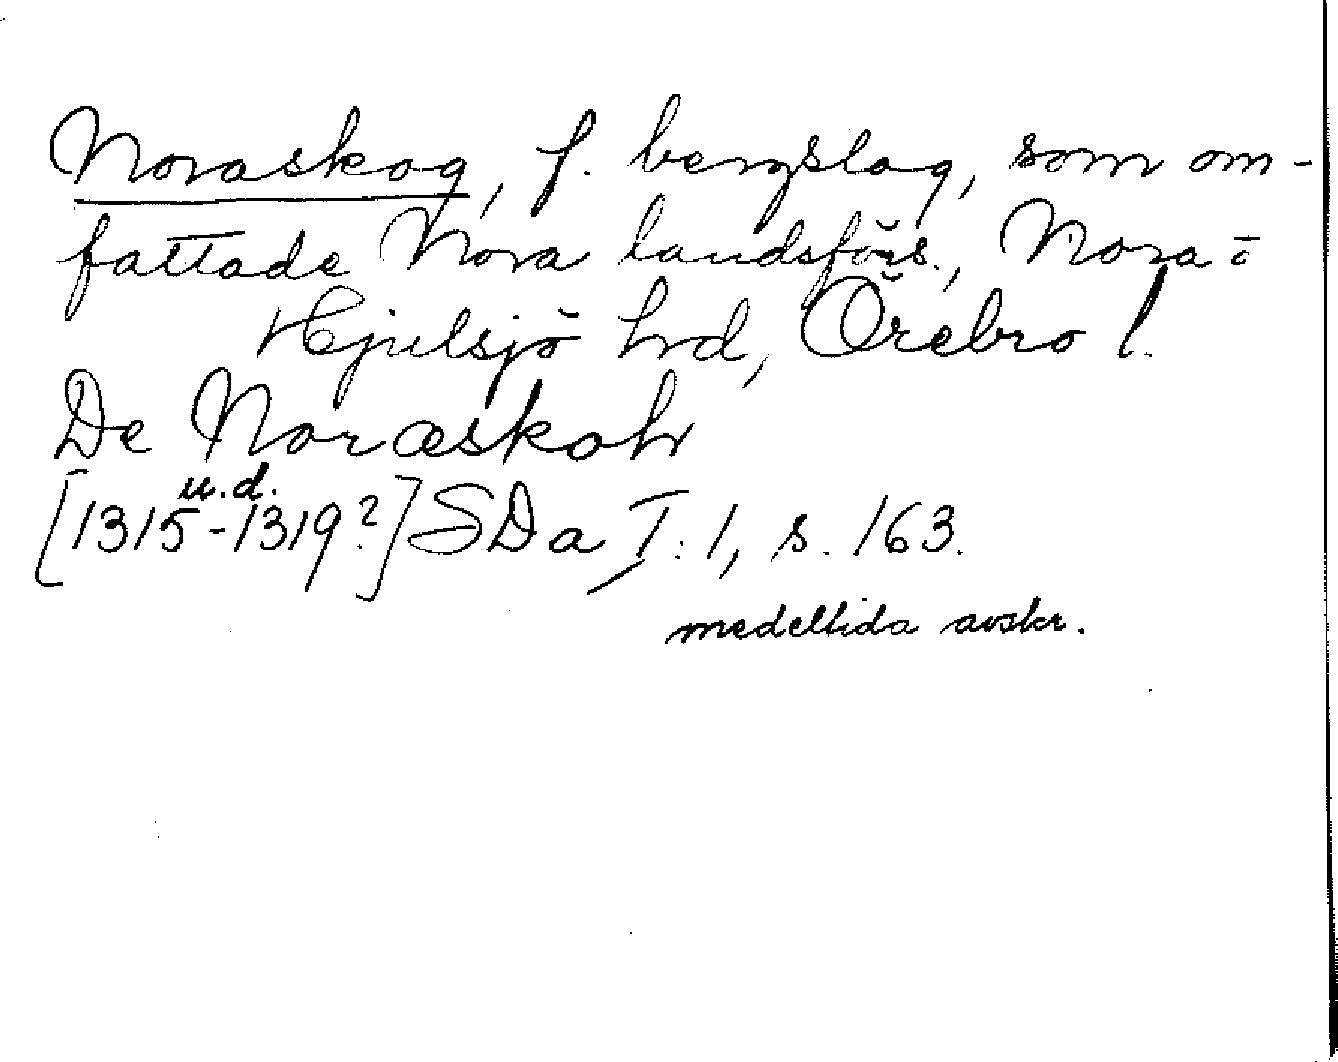 Noraskog, f. bergslag, som om-
fattade Nora landsförs., Nora o
Hjulsjö hd, Örebro l.
De Noræskoh
u.d.
[1315-1319?] SDa I:1, s. 163.
medeltida avskr.